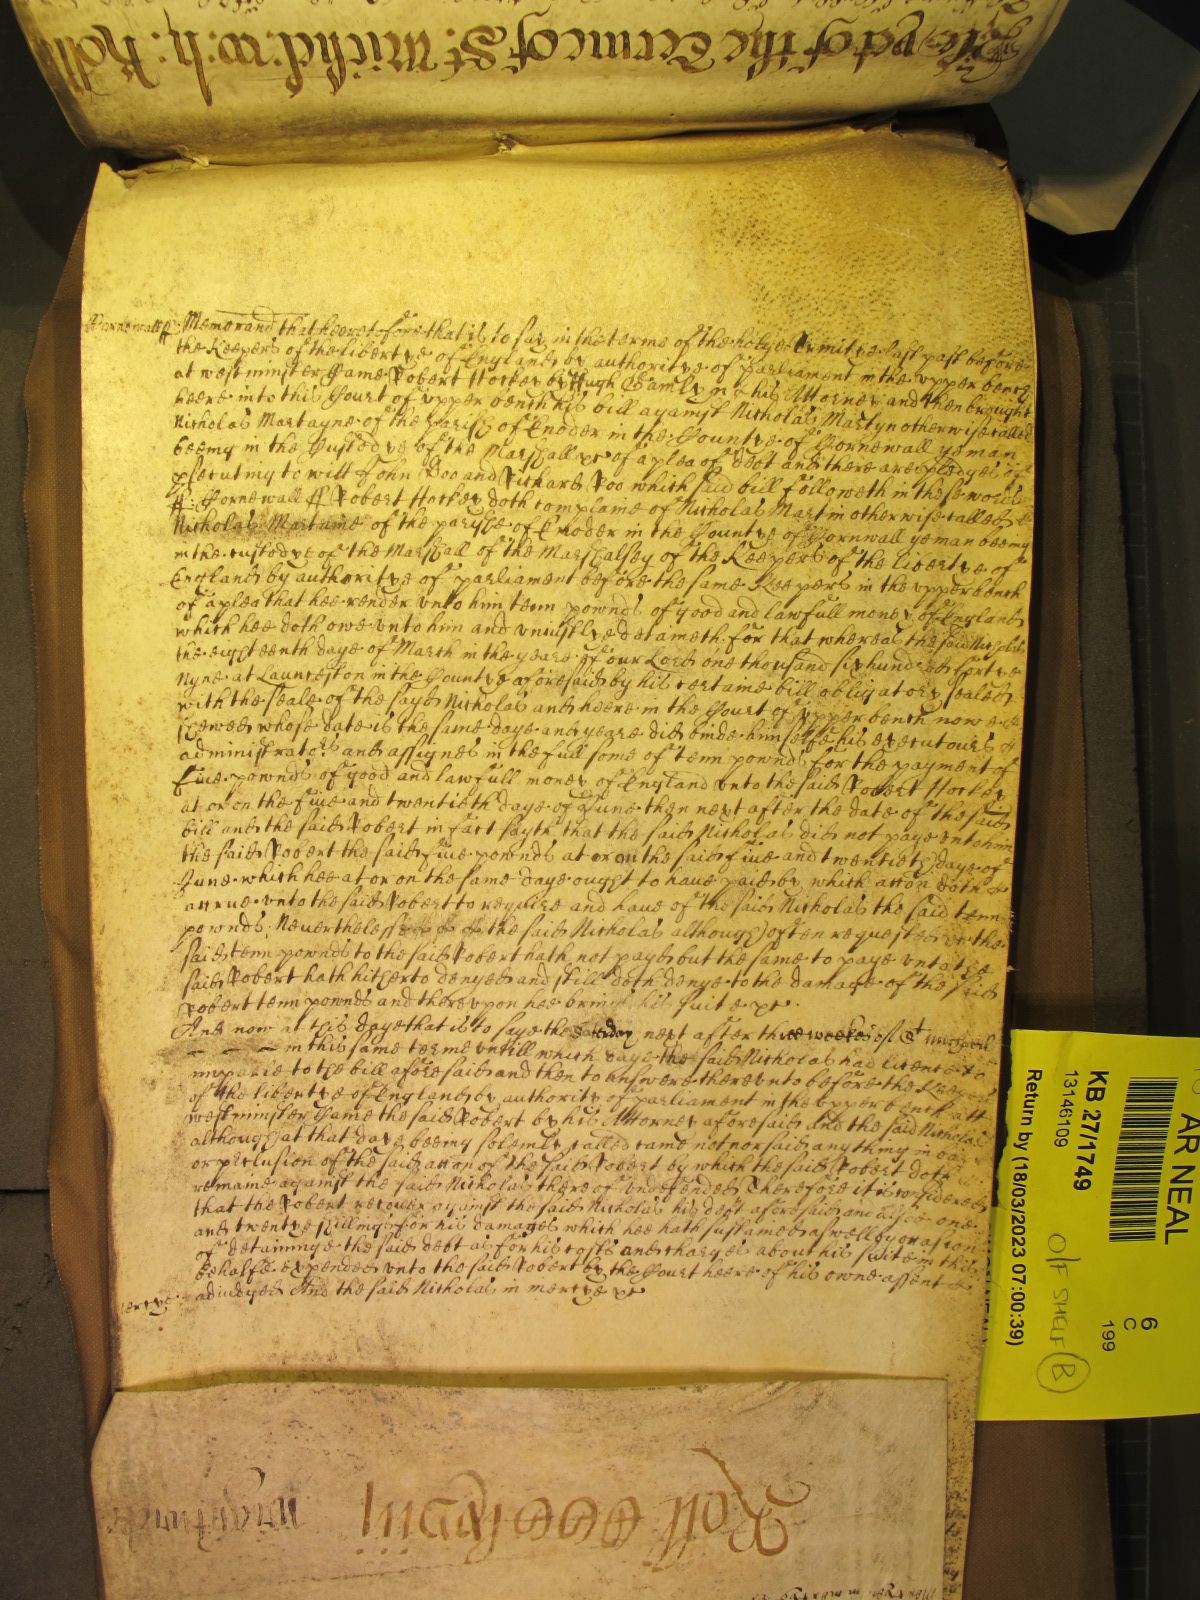 yet of the Terme of St. Michael: w: h: Roll
Cornewall ss Memorand that heeretofore that is to say in the terme of the holye Trinitye last past before
the Keepers of the libertye of England by authoritye of parliament in the vpper bench
at westminster Came Robert Hocken by Hugh his Attorney and then brought
heere into this Court of vpper bench his bill against Nicholas Martyn otherwise called
Nicholas Martayne of the parish of Enoder in the Countye of Cornewall yeoman
beeing in the Custodye of the Marshall &c of a plea of debt and there are pledges of
prosecuting to witt John Doo and Richard Roo which said bill followeth in these words
ss: Cornewall ss Robert Hocken doth complaine of Nicholas Martin otherwise called
Nicholas Martaine of the parishe of Enoder in the Countye of Cornwall yeoman beeing
in the custodye of the Marshall of the Marshalsey of the Keepers of the libertye of
England by authoritye of parliament before the same Keepers in the vpper bench
of a plea that hee render vnto him tenn pownds of good and lawfull money of England
which hee doth owe vnto him and vniustlye detaineth for that whereas the said Nicholas
the eighteenth daye of March in the yeare of our Lord one thousand six hundred fortye
nyne at Launceston in the Countye aforesaid by his certaine bill obligatory sealed
with the seale of the sayd Nicholas and heere in the Court of vpper bench nowe
shewed whose date is the same daye and yeare did binde himselfe his executours
administrators and assignes in the full some of tenn pownds for the payment of
fiue pownds of good and lawfull money of England vnto the said Robert Hocken
at or on the fiue and twentieth daye of June then next after the date of the said
bill and the said Robert in fact sayth that the said Nicholas did not paye vnto him
the said Robert the said fiue pownds at or on the said fiue and twentieth daye of
June which hee at or on the same daye ought to haue paid by which accon doth
accrue vnto the said Robert to require and haue of the said Nicholas the said tenn
pownds: Neverthelesse the said Nicholas although often requested the
said tenn pownds to the said Robert hath not payd but the same to paye vnto the
said Robert hath hitherto denyed and still doth denye to the damage of the said
Robert tenn pownds and therevpon hee brings his suite &c.
And now at this daye that is to saye the Saterday next after three weekes of St Michaell
in this same terme vntill which daye the said Nicholas had licence to
imparle to the bill aforesaid and then to answere therevnto before the Keepers
of the libertye of England by authority of parliament in the vpper bench att
westminster Came the said Robert by his Attorney aforesaid and the said Nicholas
although at that daye beeing solemly called came not nor said anything in barr
or preclusion of the said accon of the said Robert by which the said Robert doth
remaine against the said Nicholas thereof vndefended Therefore it is considered
that the Robert recouer against the said Nicholas his debt aforesaid and alsoe one
and twentye shillings for his damages which hee hath sustained aswell by occasion
of detaininge the said debt as for his costs and charges about his suite in this
behalfe expended vnto the said Robert by the Court heere of his owne assent
adiudged And the said Nicholas in mercye &c
mercye
Roll
wightwick
AR NEAL
KB 27/1749
13146109
Return by (18/03/2023 07:00:39)
6
C
199
O/F SHELF B